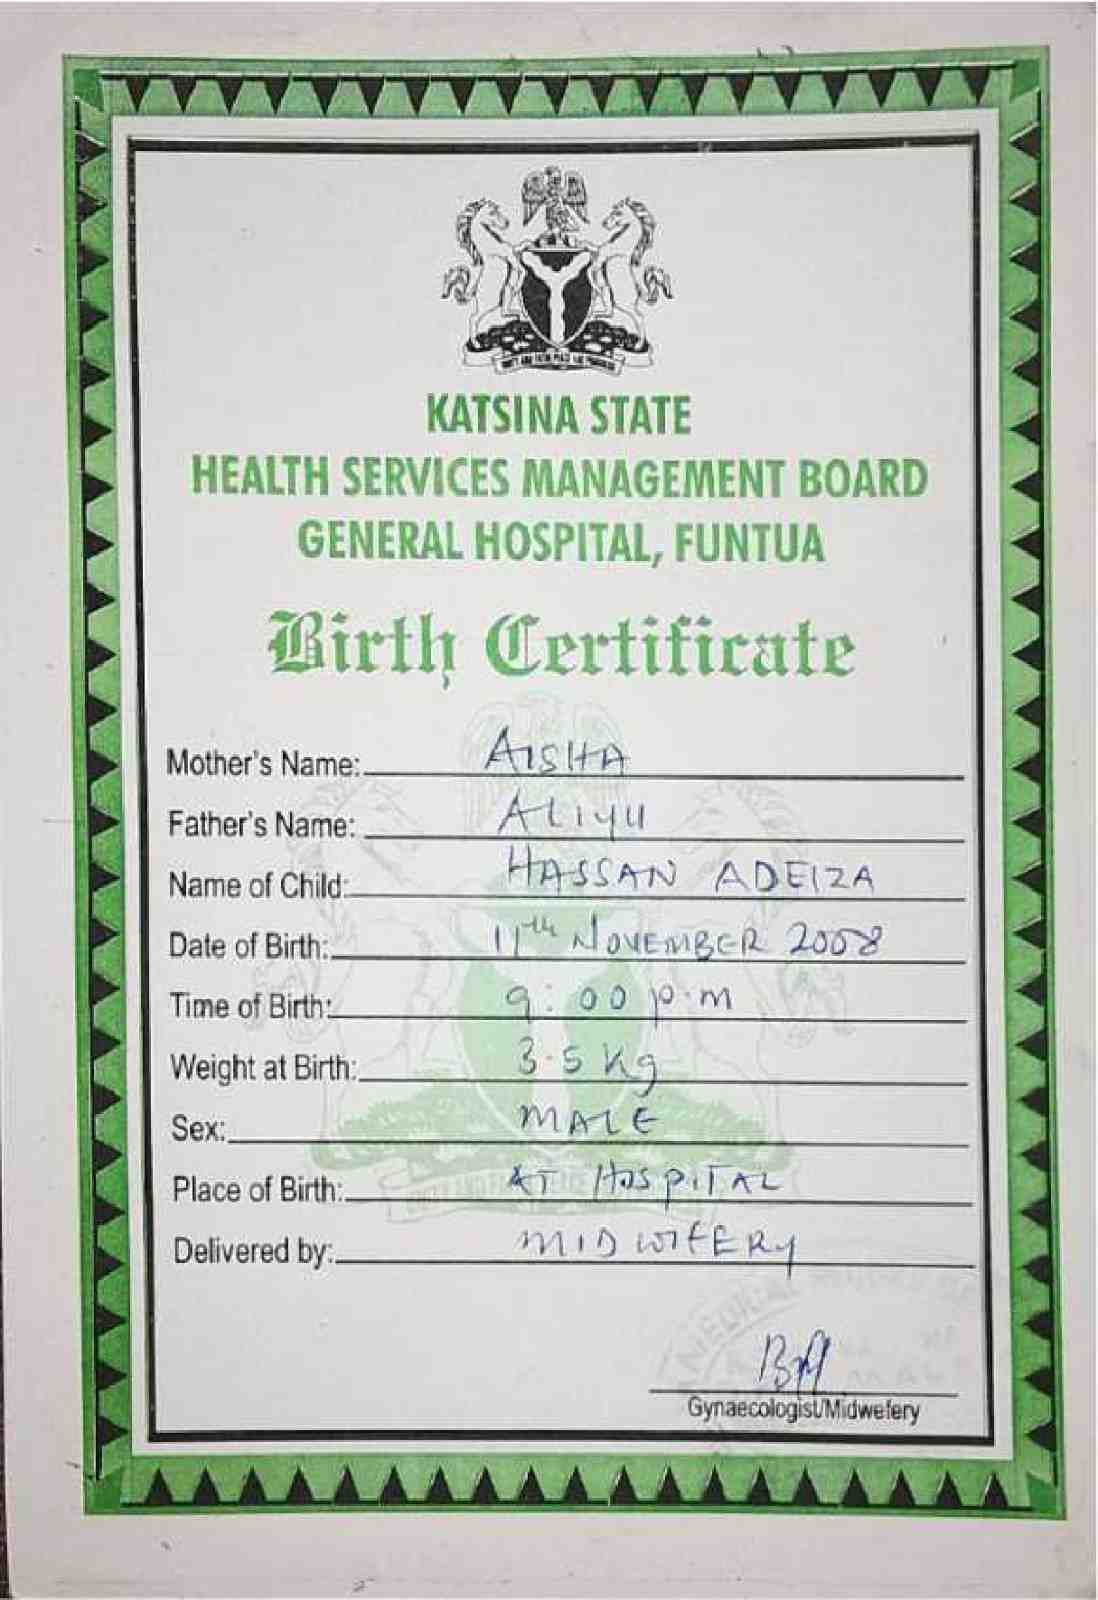 KATSINA STATE
HEALTH SERVICES MANAGEMENT BOARD
GENERAL HOSPITAL, FUNTUA
Birth Certificate
Mother's Name: AISHA
Father's Name: ALIYU
Name of Child: HASSAN ADEIZA
Date of Birth: 11th NOVEMBER 2008
Time of Birth: 9:00 p.m
Weight at Birth: 3.5 Kg
Sex: MALE
Place of Birth: AT HOSPITAL
Delivered by: MIDWIFERY
Gynaecologist/Midwefery